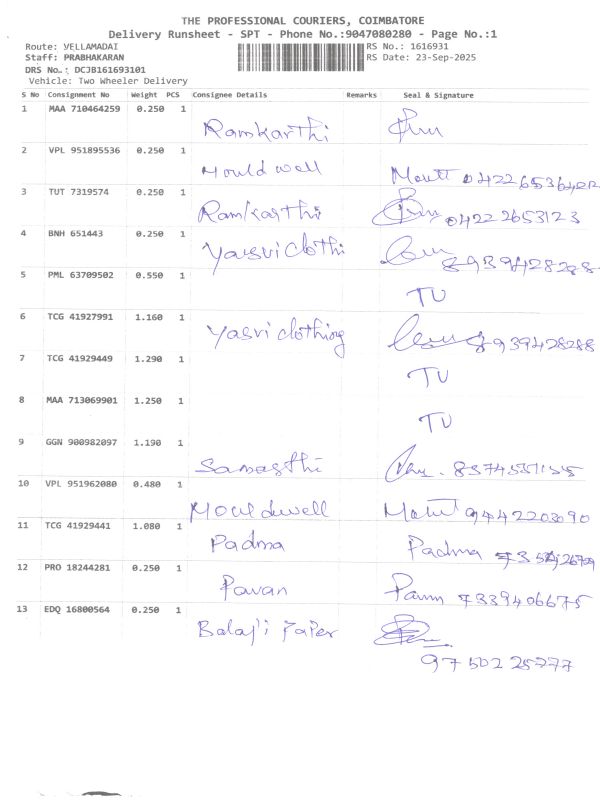 THE PROFESSIONAL COURIERS, COIMBATORE
Delivery Runsheet - SPT - Phone No.:9047080280 - Page No.:1
Route: YELLAMADAI RS No.: 1616931
Staff: PRABHAKARAN RS Date: 23-Sep-2025
DRS No.: DCJB161693101
Vehicle: Two Wheeler Delivery
S No Consignment No Weight PCS Consignee Details Remarks Seal & Signature
1 MAA 710464259 0.250 1
Ramkarthi
2 VPL 951895536 0.250 1
Mould well
3 TUT 7319574 0.250 1
Ramkarthi 04222653123
4 BNH 651443 0.250 1
Yasvi clothi 8939428288
5 PML 63709502 0.550 1
TU
6 TCG 41927991 1.160 1
Yasvi clothing 8939428288
7 TCG 41929449 1.290 1
TU
8 MAA 713069901 1.250 1
TU
9 GGN 900982097 1.190 1
10 VPL 951962080 0.480 1
Mouldwell 9442203090
11 TCG 41929441 1.080 1
Padma Padma
12 PRO 18244281 0.250 1
Pavan 7339406675
13 EDQ 16800564 0.250 1
Balaji Paper
9750225777